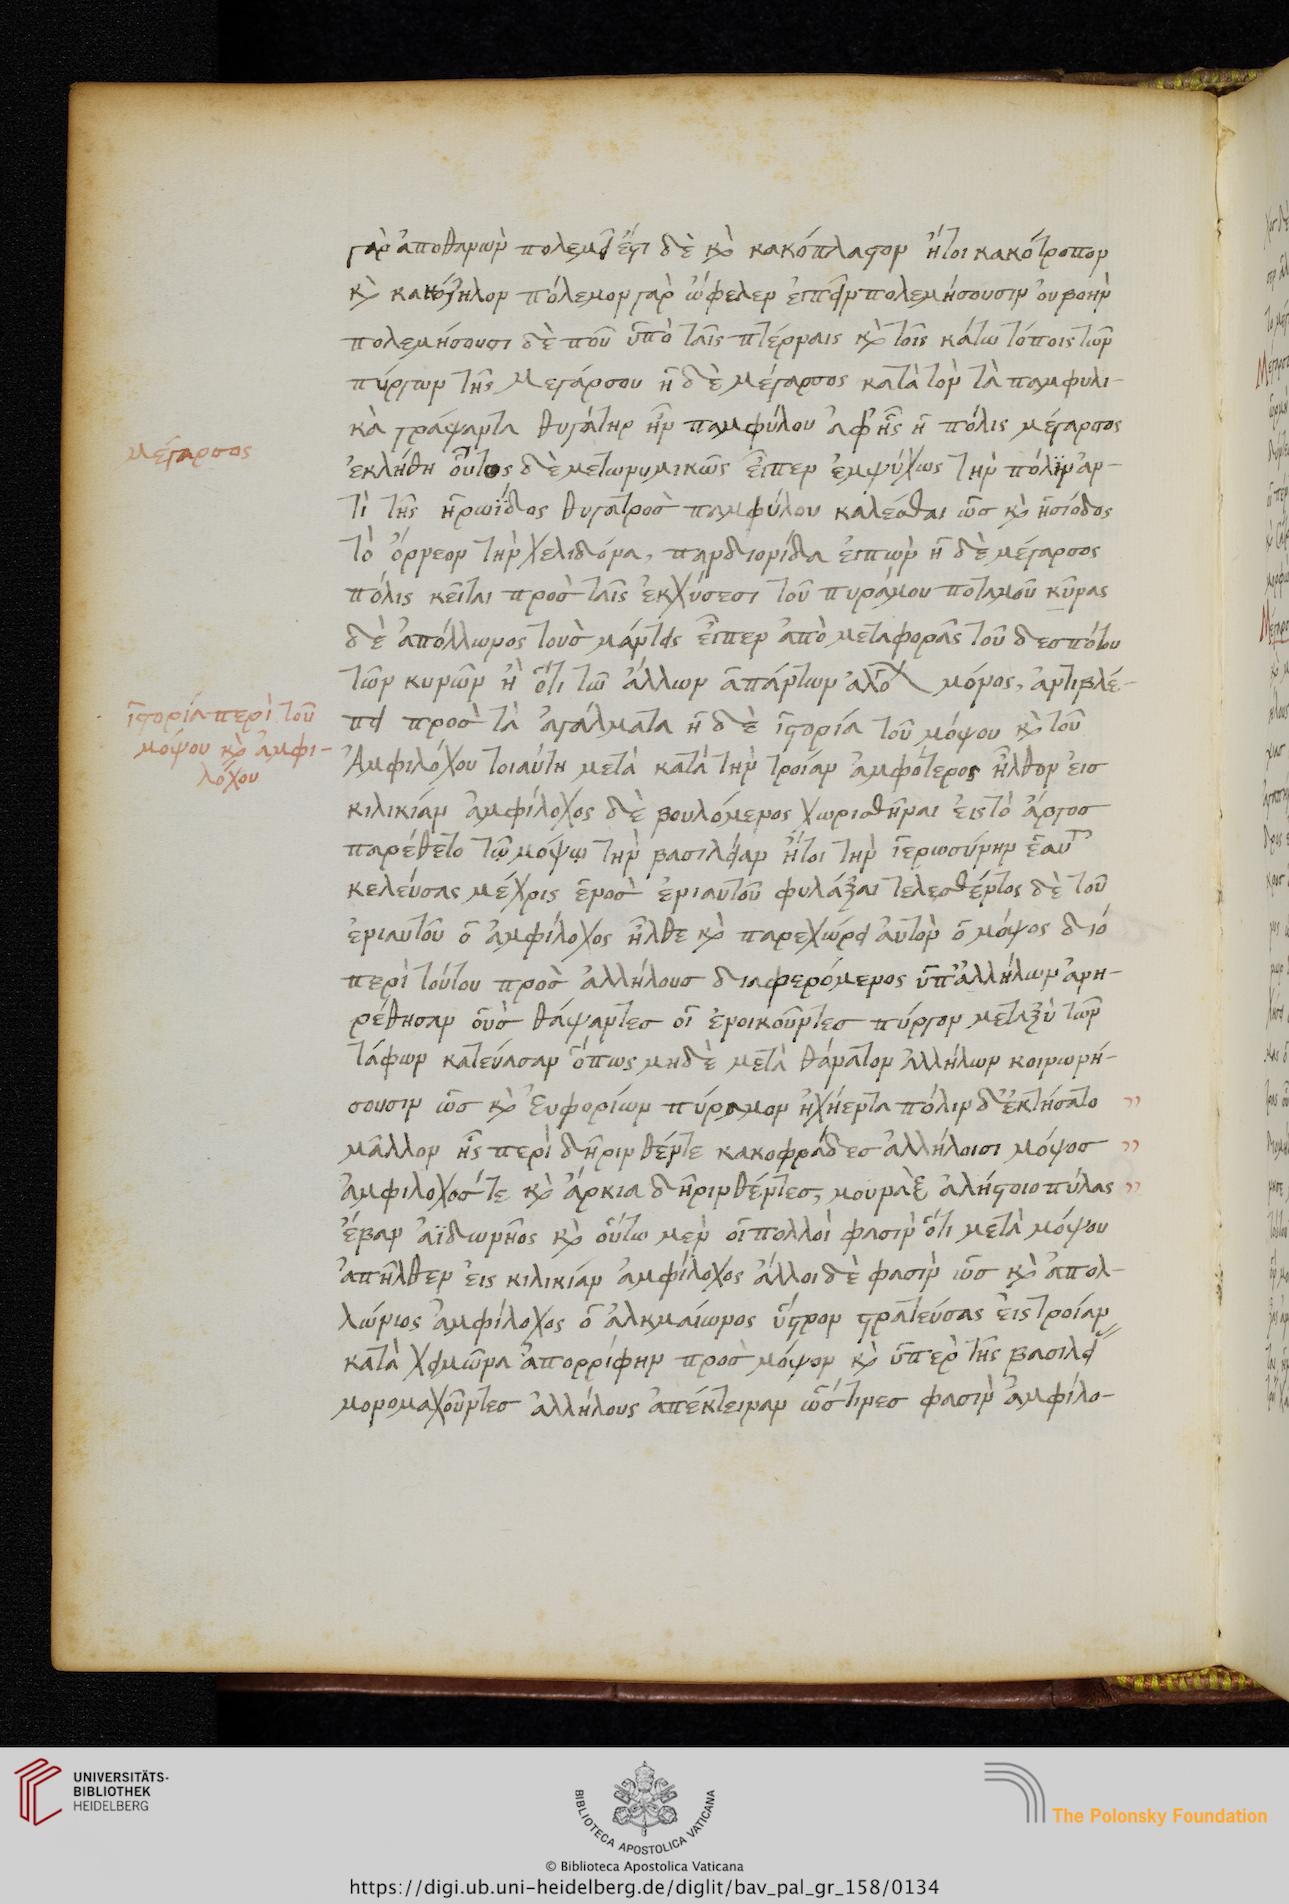 γὰρ ἀποθανὼν πολεμεῖ ἔστι δὲ καὶ κακόπλαστον ἤτοι κακότροπον
καὶ κακόζηλον πόλεμον γὰρ ὤφελεν εἰπεῖν πολεμήσουσιν οὐ βοὴν
πολεμήσουσι δὲ ποῦ ὑπὸ ταῖς πτέρναις καὶ τοῖς κάτω τόποις τῶν
πύργων τῆς Μεγάρσου ἡ δὲ μέγαρσος κατὰ τὸν τὰ παμφυλι-
κὰ γράψαντα θυγάτηρ ἦν παμφύλου ἀφ' ἧς ἡ πόλις μέγαρσος
μέγαρσος
ἐκλήθη οὗτος δὲ μετωνυμικῶς εἶπεν ἐμψύχως τὴν πόλιν ἀν-
τὶ τῆς ἡρωΐδος θυγατρὸσ παμφύλου καλεῖσθαι ὡσ καὶ ἡσίοδος
τὸ ὄρνεον τὴν χελιδόνα, πανδιονίδα εἰπὼν ἡ δὲ μέγαρσος
πόλις κεῖται προσ ταῖς ἐκχύσεσι τοῦ πυράμου ποταμοῦ κύνας
δὲ ἀπόλλωνος τοὺσ μάντεις εἶπεν ἀπὸ μεταφορᾶς τοῦ δεσπότου
τῶν κυνῶν ἢ ὅτι τῶ ἄλλων ἁπάντων μόνος, ἀντιβλέ-
ἱστορία περὶ τοῦ
μόψου καὶ ἀμφι-
λόχου
πει προσ τὰ ἀγάλματα ἡ δὲ ἱστορία τοῦ μόψου καὶ τοῦ
Ἀμφιλόχου τοιαύτη μετὰ κατὰ τὴν τροίαν ἀμφότερος ἦλθον εἰσ
κιλικίαν ἀμφίλοχος δὲ βουλόμενος χωρισθῆναι εἰς τὸ ἄργοσ
παρέθετο τῷ μόψῳ τὴν βασιλείαν ἤτοι τὴν ἱερωσύνην ἑαυτοῦ
κελεύσας μέχρις ἑνοσ ἐνιαυτοῦ φυλάξαι τελεσθέντος δὲ τοῦ
ἐνιαυτοῦ ὁ ἀμφίλοχος ἦλθε καὶ παρεχώρει αὐτὸν ὁ μόψος διό
περὶ τούτου προσ ἀλλήλουσ διαφερόμενος ὑπ' ἀλλήλων ἀνη-
ρέθησαν οὓσ θάψαντεσ οἱ ἐνοικοῦντεσ πύργον μεταξὺ τῶν
τάφων κατεύασαν ὅπως μηδὲ μετὰ θάνατον ἀλλήλων κοινωνή-
σουσιν ὡσ καὶ Ἐυφορίων πύραμον ἠχήεντα πόλιν δ' ἐκτήσατο
μᾶλλον ἧς περὶ δῆριν θέντε κακοφράδεσ ἀλλήλοισι μόψοσ
ἀμφιλοχοσ τε καὶ ἄρκια δῆριν θέντεσ, μουνὰξ ἀλήστοιο πύλας
ἔβαν ἀϊδωνῆος καὶ οὕτω μεν οἱ πολλοὶ φασὶν ὅτι μετὰ μόψου
ἀπῆλθεν εἰς κιλικίαν ἀμφίλοχος ἄλλοι δὲ φασὶν ὡσ καὶ ἀπολ-
λώνιος ἀμφίλοχος ὁ ἀλκμαίωνος ὕστρον στρατεύσας εἰς τροίαν
κατὰ χειμῶνα ἀπορρίφην προσ μόψον καὶ ὑπὲρ τῆς βασιλεί
μονομαχοῦντεσ ἀλλήλους ἀπέκτειναν ὥστινεσ φασὶν ἀμφίλο-
UNIVERSITÄTS-
BIBLIOTHEK
HEIDELBERG
BIBLIOTECA APOSTOLICA VATICANA
The Polonsky Foundation
© Biblioteca Apostolica Vaticana
https://digi.ub.uni-heidelberg.de/diglit/bav_pal_gr_158/0134